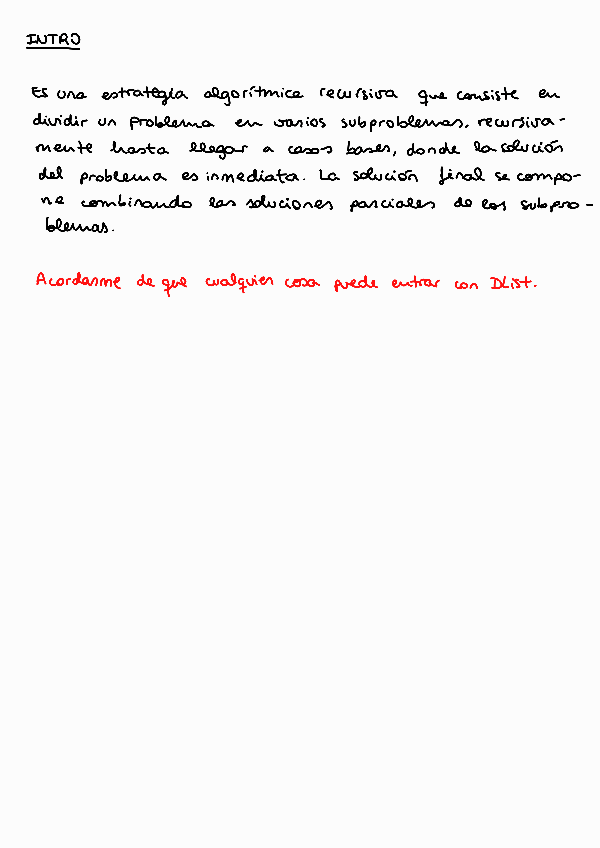 INTRO
Es una estrategia algorítmica recursiva que consiste en
dividir un problema en varios subproblemas, recursiva-
mente hasta llegar a casos bases, donde la solución
del problema es inmediata. La solución final se compo-
ne combinando las soluciones parciales de los subpro-
blemas.
Acordarme de que cualquier cosa puede entrar con DList.